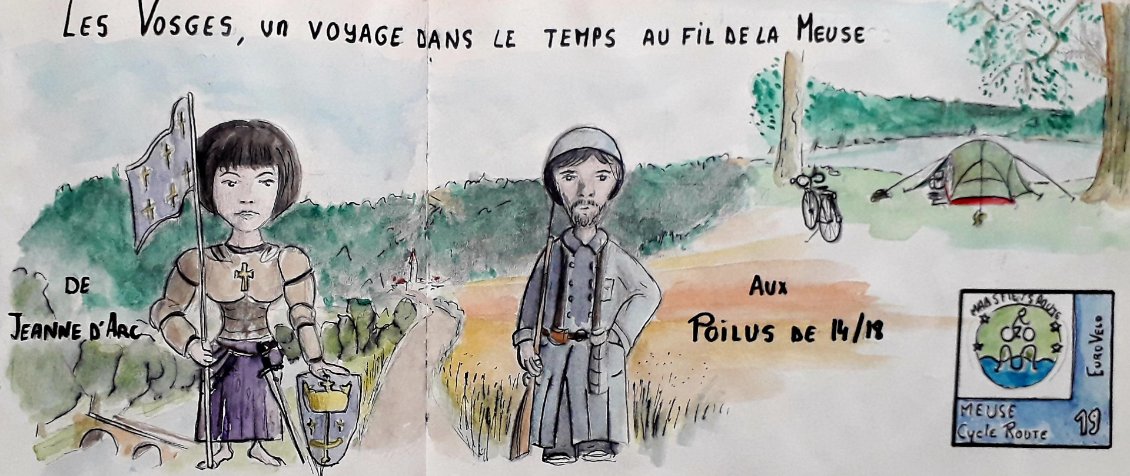 LES VOSGES, UN VOYAGE DANS LE TEMPS AU FIL DE LA MEUSE
DE
JEANNE D'ARC
AUX
POILUS DE 14/18
EURO VELO
MEUSE
Cycle ROUTE
19